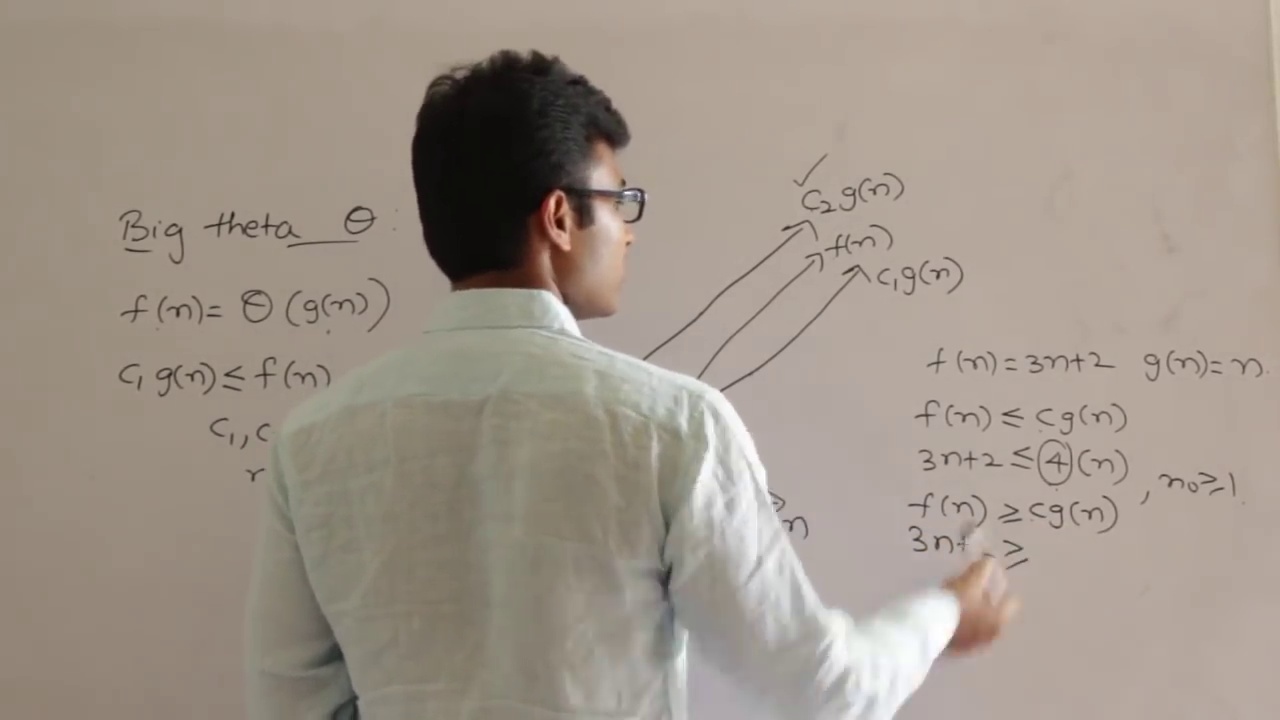 Big theta θ :
f(n) = θ (g(n))
c₁ g(n) ≤ f(n)
c₁, c
c₂ g(n)
f(n)
c₁ g(n)
n
f(n) = 3n+2 g(n) = n.
f(n) ≤ cg(n)
3n+2 ≤ 4(n) , n₀ ≥ 1
f(n) ≥ cg(n)
3n+ ≥